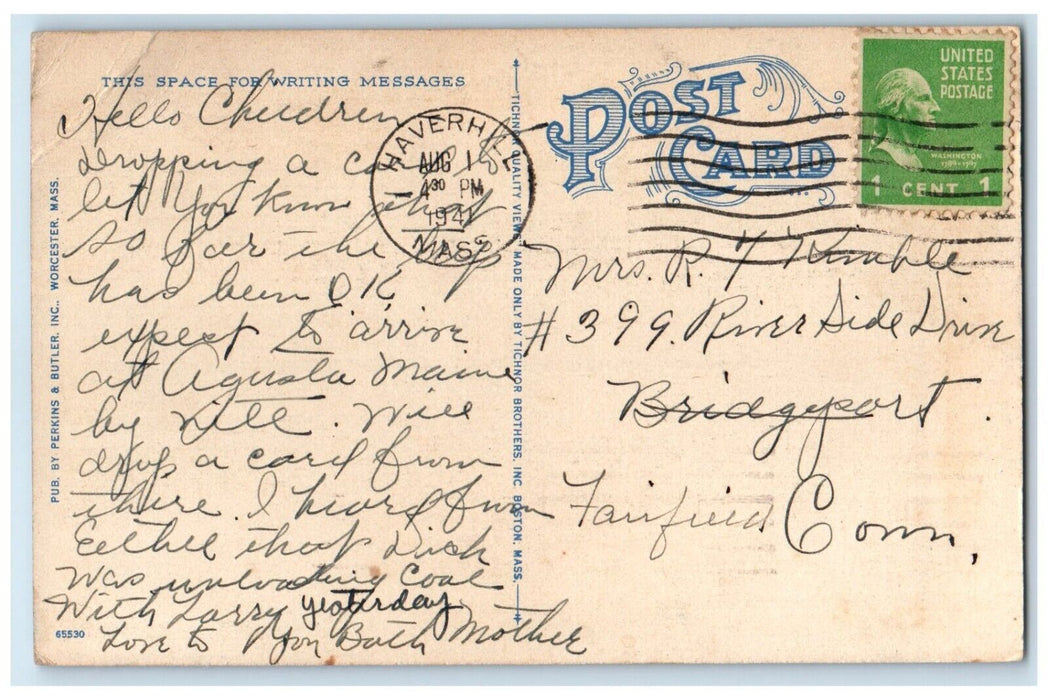 THIS SPACE FOR WRITING MESSAGES
Hello Cheudren
Dropping a card to
let you know that
so far the trip
has been OK
expect to arrive
at Agusta Maine
by Nitt. Will
drop a card from
there. I heard from
Eethel that Dick
was unloading Coal
With Larry yesterday
Love to You Both Mother
65530
PUB. BY PERKINS & BUTLER, INC., WORCESTER, MASS.
TICHNOR QUALITY VIEWS MADE ONLY BY TICHNOR BROTHERS, INC. BOSTON, MASS.
POST
CARD
HAVERHILL
AUG 1
4 30 PM
1941
MASS
UNITED
STATES
POSTAGE
WASHINGTON
1789-1797
1 CENT 1
Mrs. R. Y Kimble
# 399. River Side Drive
Bridgeport.
Fairfield Conn,